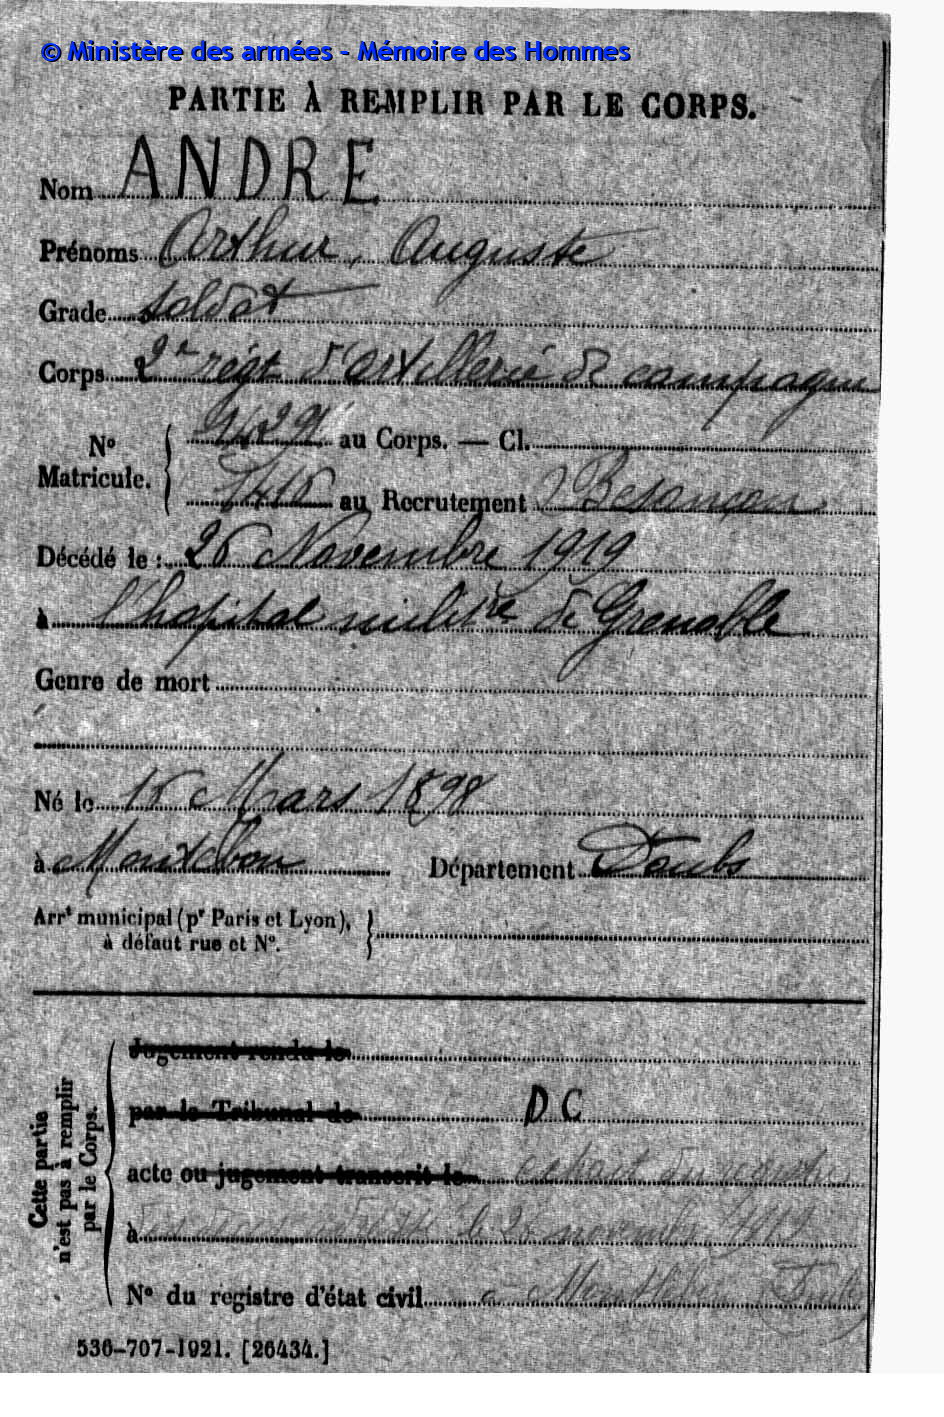 © Ministère des armées - Mémoire des Hommes
PARTIE À REMPLIR PAR LE CORPS.
Nom ANDRE
Prénoms Arthur, Auguste
Grade soldat
Corps 2e régt d'artillerie de campagne
N° Matricule. 9429 au Corps. — Cl.
au Recrutement Besançon
Décédé le : 26 Novembre 1919
à l'hopital militre de Grenoble
Genre de mort
Né le 15 Mars 1898
à Montlebon Département Doubs
Arrt municipal (pr Paris et Lyon),
à défaut rue et N°.
Cette partie
n'est pas à remplir
par le Corps.
Jugement rendu le
par le Tribunal de D C
acte ou jugement transcrit le extrait du registre
à des décès le 26 novembre 1919
N° du registre d'état civil a Montlebon Doubs
536-707-1921. [26434.]